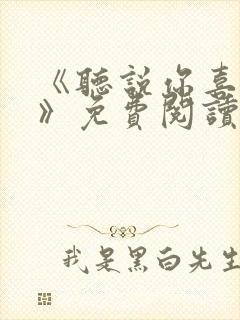 《聽說你喜
》免費閱讀
我是黑白先生